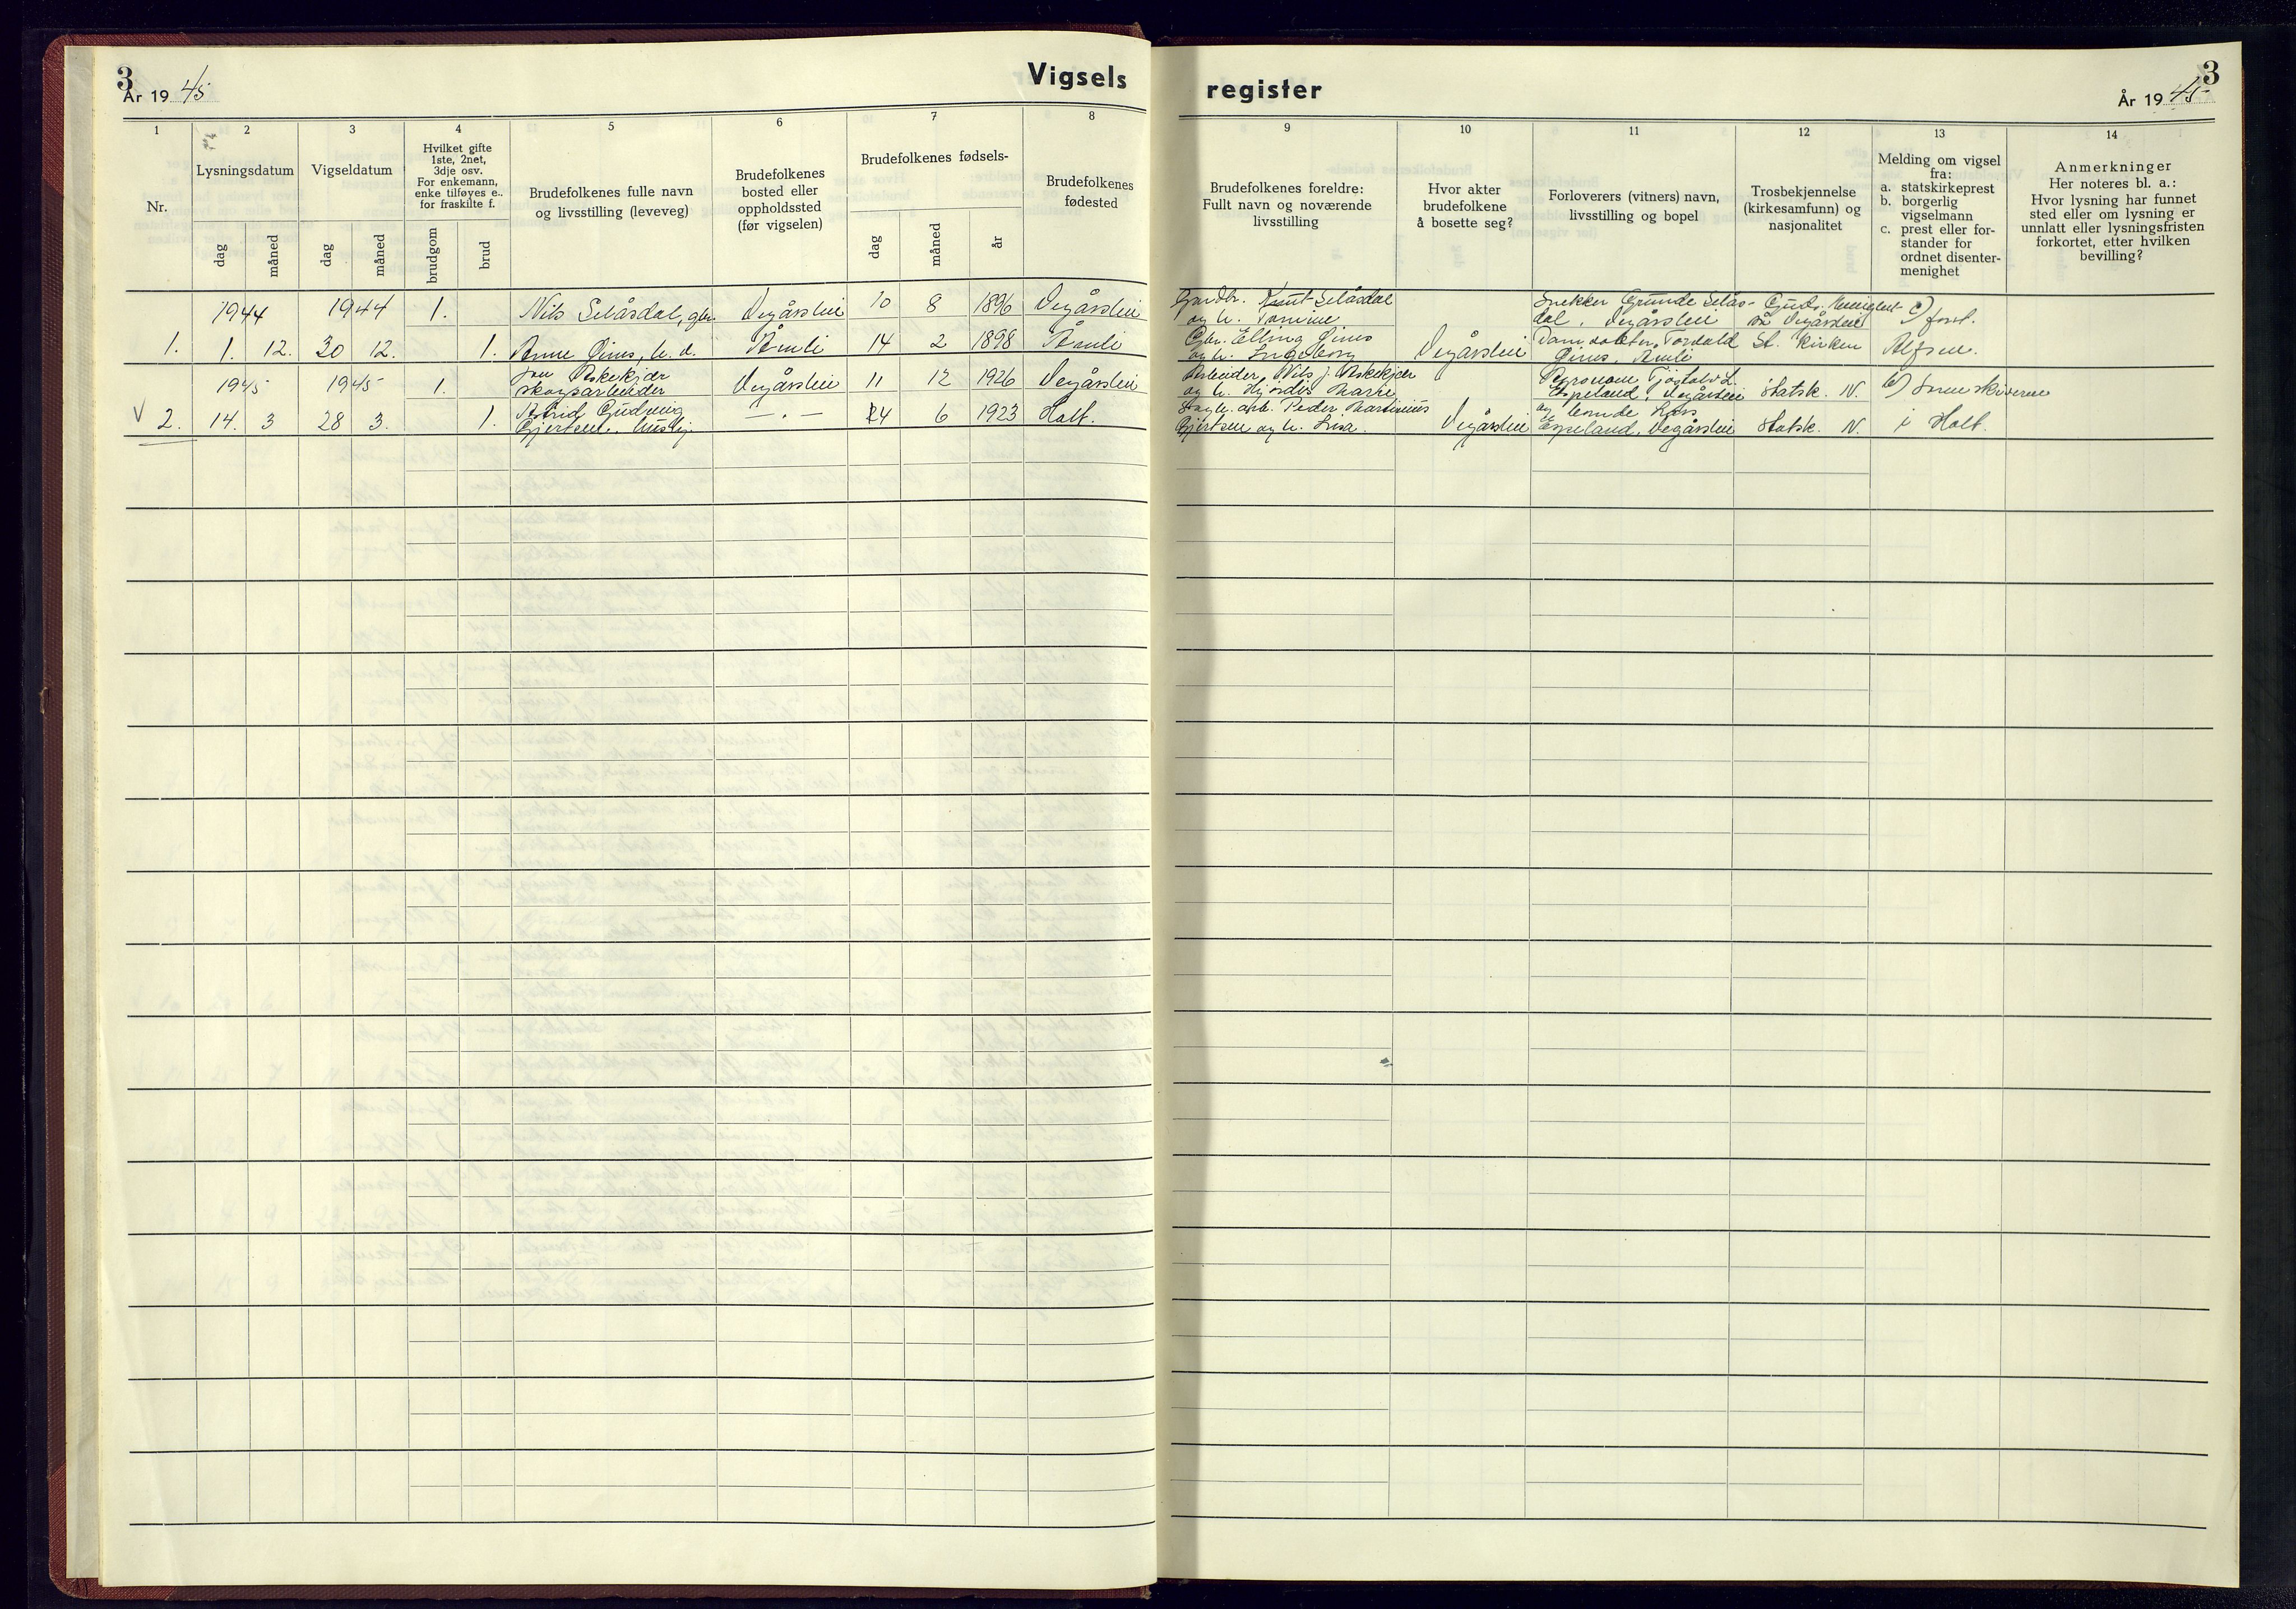 3
År 1945
Vigsels
register
3
År 1945
1
2
3
4
5
6
7
8
Nr.
Lysningsdatum
Vigseldatum
Hvilket gifte
1ste, 2net,
3dje osv.
For enkemann,
enke tilføyes e..
for fraskilte f.
Brudefolkenes fulle navn
og livsstilling (leveveg)
Brudefolkenes
bosted eller
oppholdssted
(før vigselen)
Brudefolkenes fødsels-
Brudefolkenes
fødested
dag
måned
dag
måned
brudgom
brud
dag
måned
år
9
10
11
12
13
14
Brudefolkenes foreldre:
Fullt navn og noværende
livsstilling
Hvor akter
brudefolkene
å bosette seg?
Forloverers (vitners) navn,
livsstilling og bopel
Trosbekjennelse
(kirkesamfunn) og
nasjonalitet
Melding om vigsel
fra:
a. statskirkeprest
b. borgerlig
vigselmann
c. prest eller for-
stander for
ordnet disenter-
menighet
Anmerkninger
Her noteres bl. a.:
Hvor lysning har funnet
sted eller om lysning er
unnlatt eller lysningsfristen
forkortet, etter hvilken
bevilling?
1944 1944 1. Nils Selåsdal, gbr. Vegårshei 10 8 1896 Vegårshei
1. 1. 12. 30 12. 1. Anne Åmli 14 2 1898 Åmli
1945 1945 1. Askekjær
skogsarbeider Vegårshei 11 12 1926 Vegårshei
V 2. 14. 3 28 3. 1. Astrid Gudning
Gjertsen, huslig. — . — 24 6 1923 Holt.
Gardbr. Knut Selåsdal
og h. Tomine
Gbr. Elling
og h. Ingeborg Vegårshei
Arbeider Nils J. Askekjær
og h. Hjördis Marie
Peder Martinius
Gjertsen og h. Lisa. Vegårshei
Snekker Gunde Selås-
dal, Vegårshei
Tordald
Åmli
Espeland, Vegårshei
og Lars
Espeland, Vegårshei
Menighet
på Vegårshei
St. kirken
Statsk. N.
Statsk. N.
c) forst.
Alfsen.
b) Sorenskriveren
i Holt.